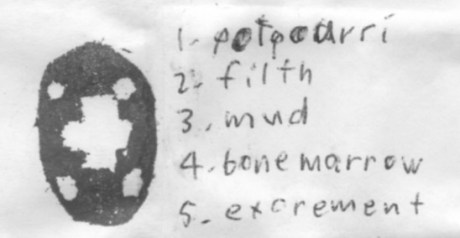 1. potpourri
2. filth
3. mud
4. bonemarrow
5. excrement